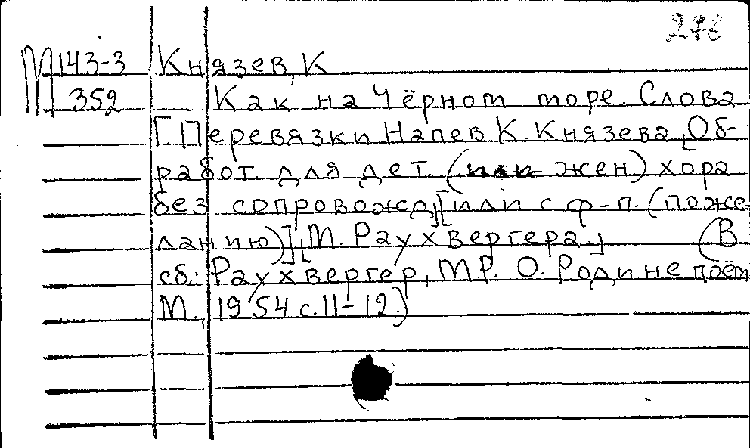 278
М 143-3 Князев, К
352 Как на Чёрном море. Слова
Г. Перевязки Напев К. Князева, Об-
работ. для дет. (или жен) хора
без сопровожд [или с ф-п. (поже-
ланию)] [М. Раухвергера] (В
сб: Раухвергер, М Р. О. Родине поём
М., 1954 с. 11-12)